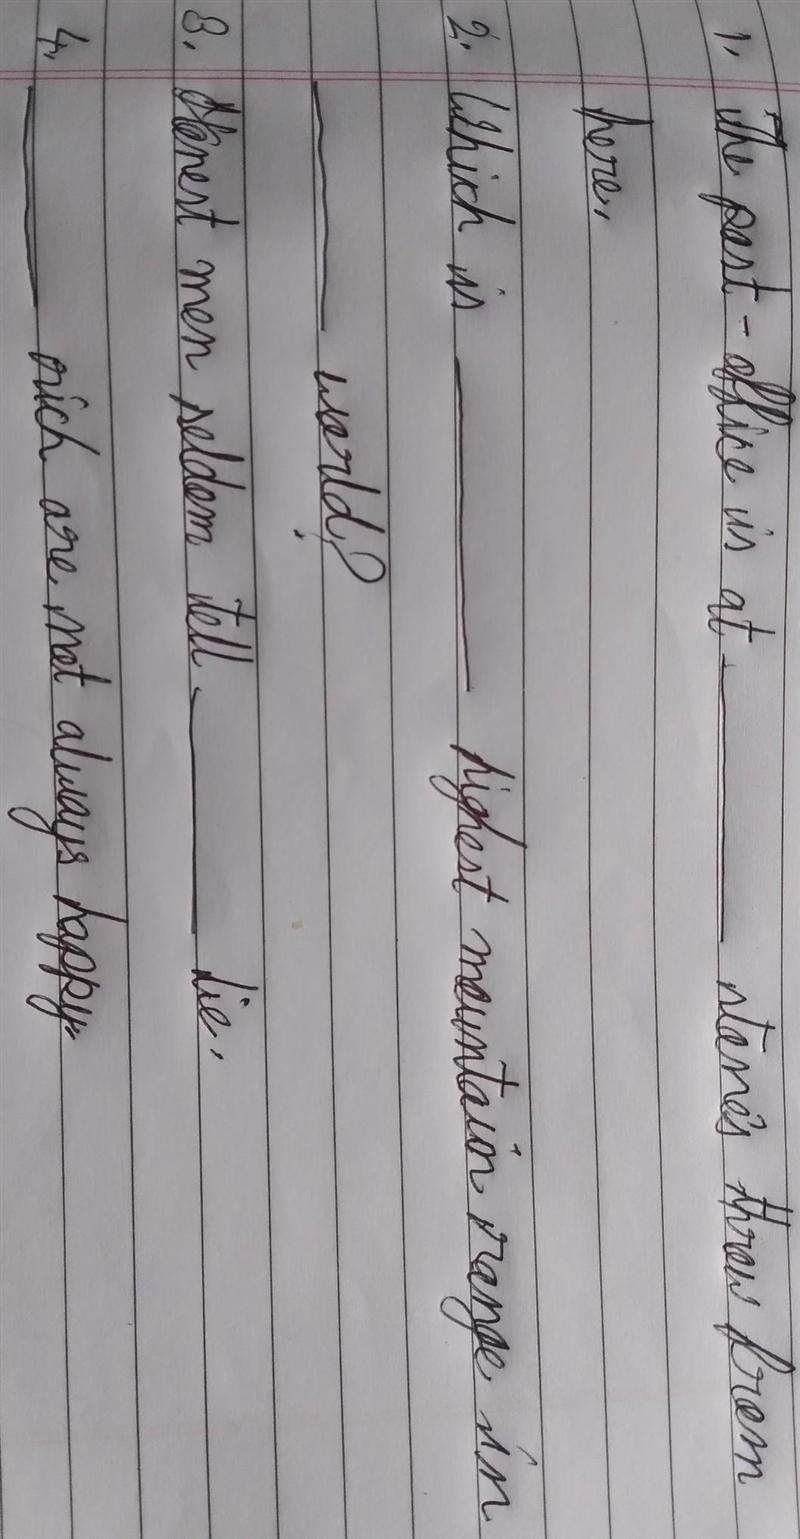 1. The post-office is at ______ stone's throw from
here.
2. Which is ______ highest mountain range in
______ world?
3. Honest men seldom tell ______ lie.
4. ______ rich are not always happy.